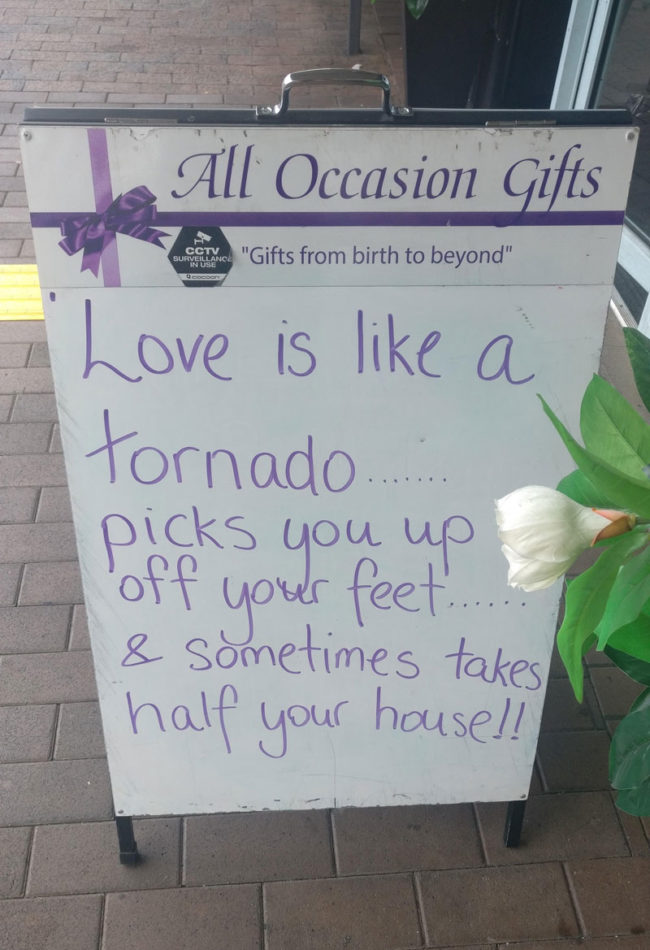 All Occasion Gifts
CCTV
SURVEILLANCE
IN USE
cocoon
"Gifts from birth to beyond"
Love is like a
tornado.......
picks you up
off your feet......
& sometimes takes
half your house!!